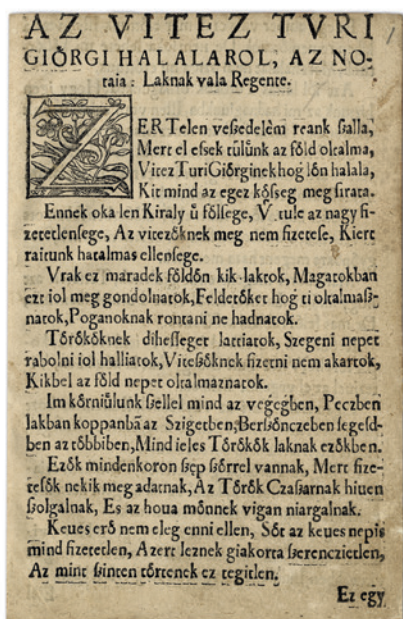 AZ VITEZ TVRI
GIŐRGI HALALAROL, AZ NO-
taia: Laknak vala Regente.
ZERTelen veßedelēm reank ßalla,
Mert el efek tülünk az föld oltalma,
Vitez Turi Giörginek hog lőn halala,
Kit mind az egez kößseg meg sirata.
Ennek oka len Kiraly ű fölsege, V tule az nagy fi-
zetetlensege, Az vitezöknek meg nem fizetese, Kiert
raitunk hatalmas ellensege.
Vrak ez maradek földön kik laktok, Magatokban
ezt iol meg gondolnatok, Feldetöket hog ti oltalmaß-
natok, Poganoknak rontani ne hadnatok.
Törököknek dihesseget lattiatok, Szegeni nepet
rabolni iol halliatok, Viteßöknek fizetni nem akartok,
Kikbel az föld nepet oltalmaznatok.
Im körniülunk ßellel mind az vegegben, Peczben
lakban koppanbā az Szigetben, Berßönczeben segesd-
ben az többiben, Mind ieles Törökök laknak ezökben.
Ezök mindenkoron ßep ßörrel vannak, Mert fize-
tesök nekik meg adatnak, Az Török Czaßarnak hiuen
ßolgalnak, Es az houa mönnek vigan niargalnak.
Keues erő nem eleg enni ellen, Söt az keues nepis
mind fizetetlen, Azert leznek giakorta ßerenczietlen,
Az mint ßinten törtenek ez tegitlen.
Ez egy